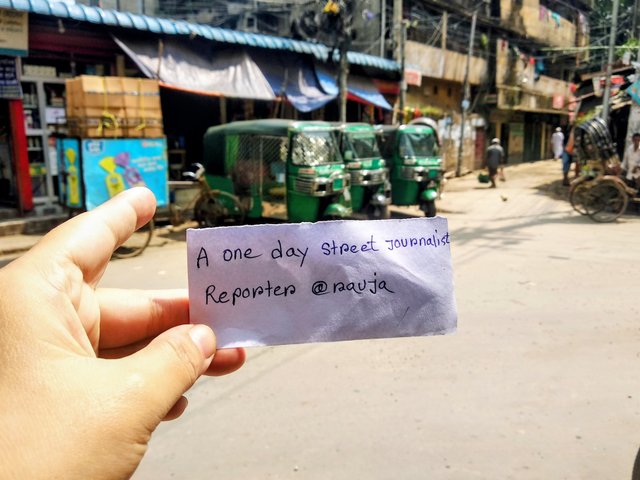 A one day Street Journalist
Reporter @rauja